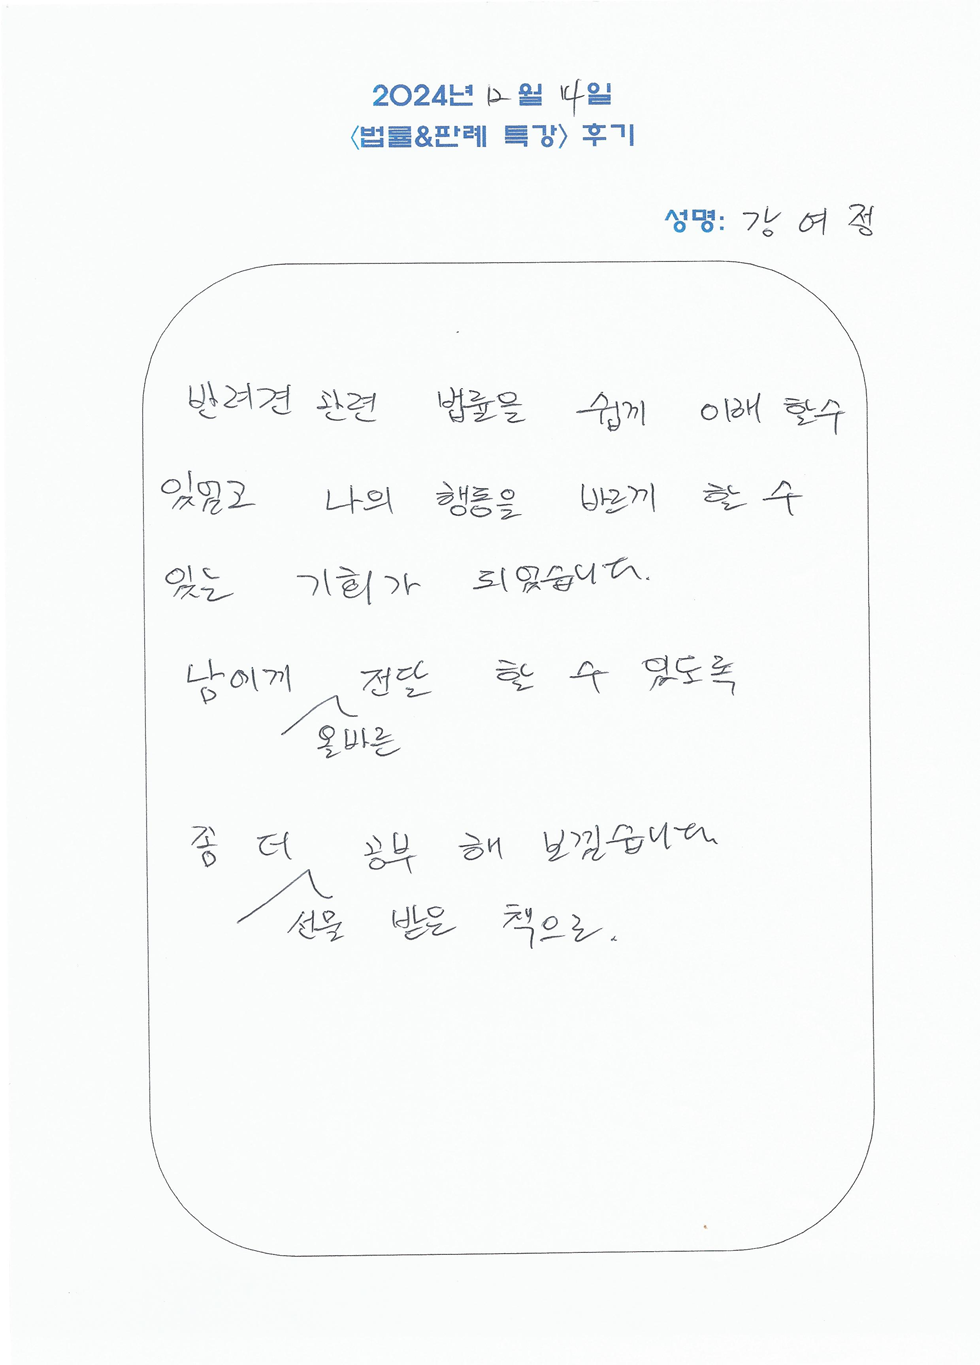 2024년 12월 14일
<법률&판례 특강> 후기
성명: 강여정
반려견 관련 법률을 쉽게 이해 할수
있었고 나의 행동을 바르게 할 수
있는 기회가 되었습니다.
남에게 전달 할 수 있도록
올바른
좀 더 공부 해 보겠습니다.
선물 받은 책으로.